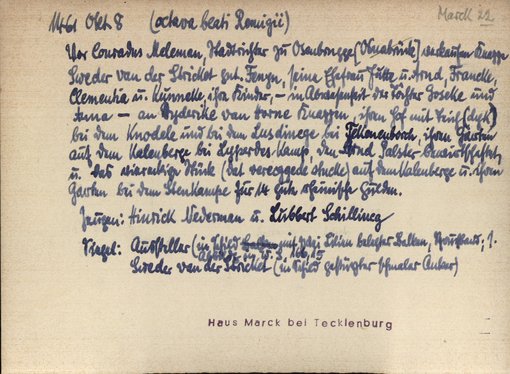 1461 Okt 8 (octava beati Remigii) Marck 22
Vor Conradus Meleman, Stadtrichter zu Osenbrugge (Osnabrück) verkaufen Knappe
Sweder van der Stricket gnt. Fenyn, seine Ehefrau Jutte u. Arnd, Francke,
Clementia u. Kunneke, ihre Kinder, – in Abwesenheit der Töchter Goseke und
Anna – an Ryderike van Horne Knappen, ihren Hof mit Teich (dyk)
bei dem Knodele und bei den Lusdinege bei Tekeneborch, ihren Garten
auf dem Kalenberge bei Lypperdes Kamp, den Arnd Palster bewirtschaftet,
u. das viereckige Stück (dat vereggede stucke) auf dem Kalenberge u. ihren
Garten bei dem Stenkampe für 14 gute rheinische Gulden.
Zeugen: Hinrick Nederman u. Lubbert Schillinck
Siegel: Aussteller (in Schild mit drei Lilien belegter Balken, ; 1.
Sweder van der Stricket (in Schild gestürzter schmaler Anker)
Haus Marck bei Tecklenburg